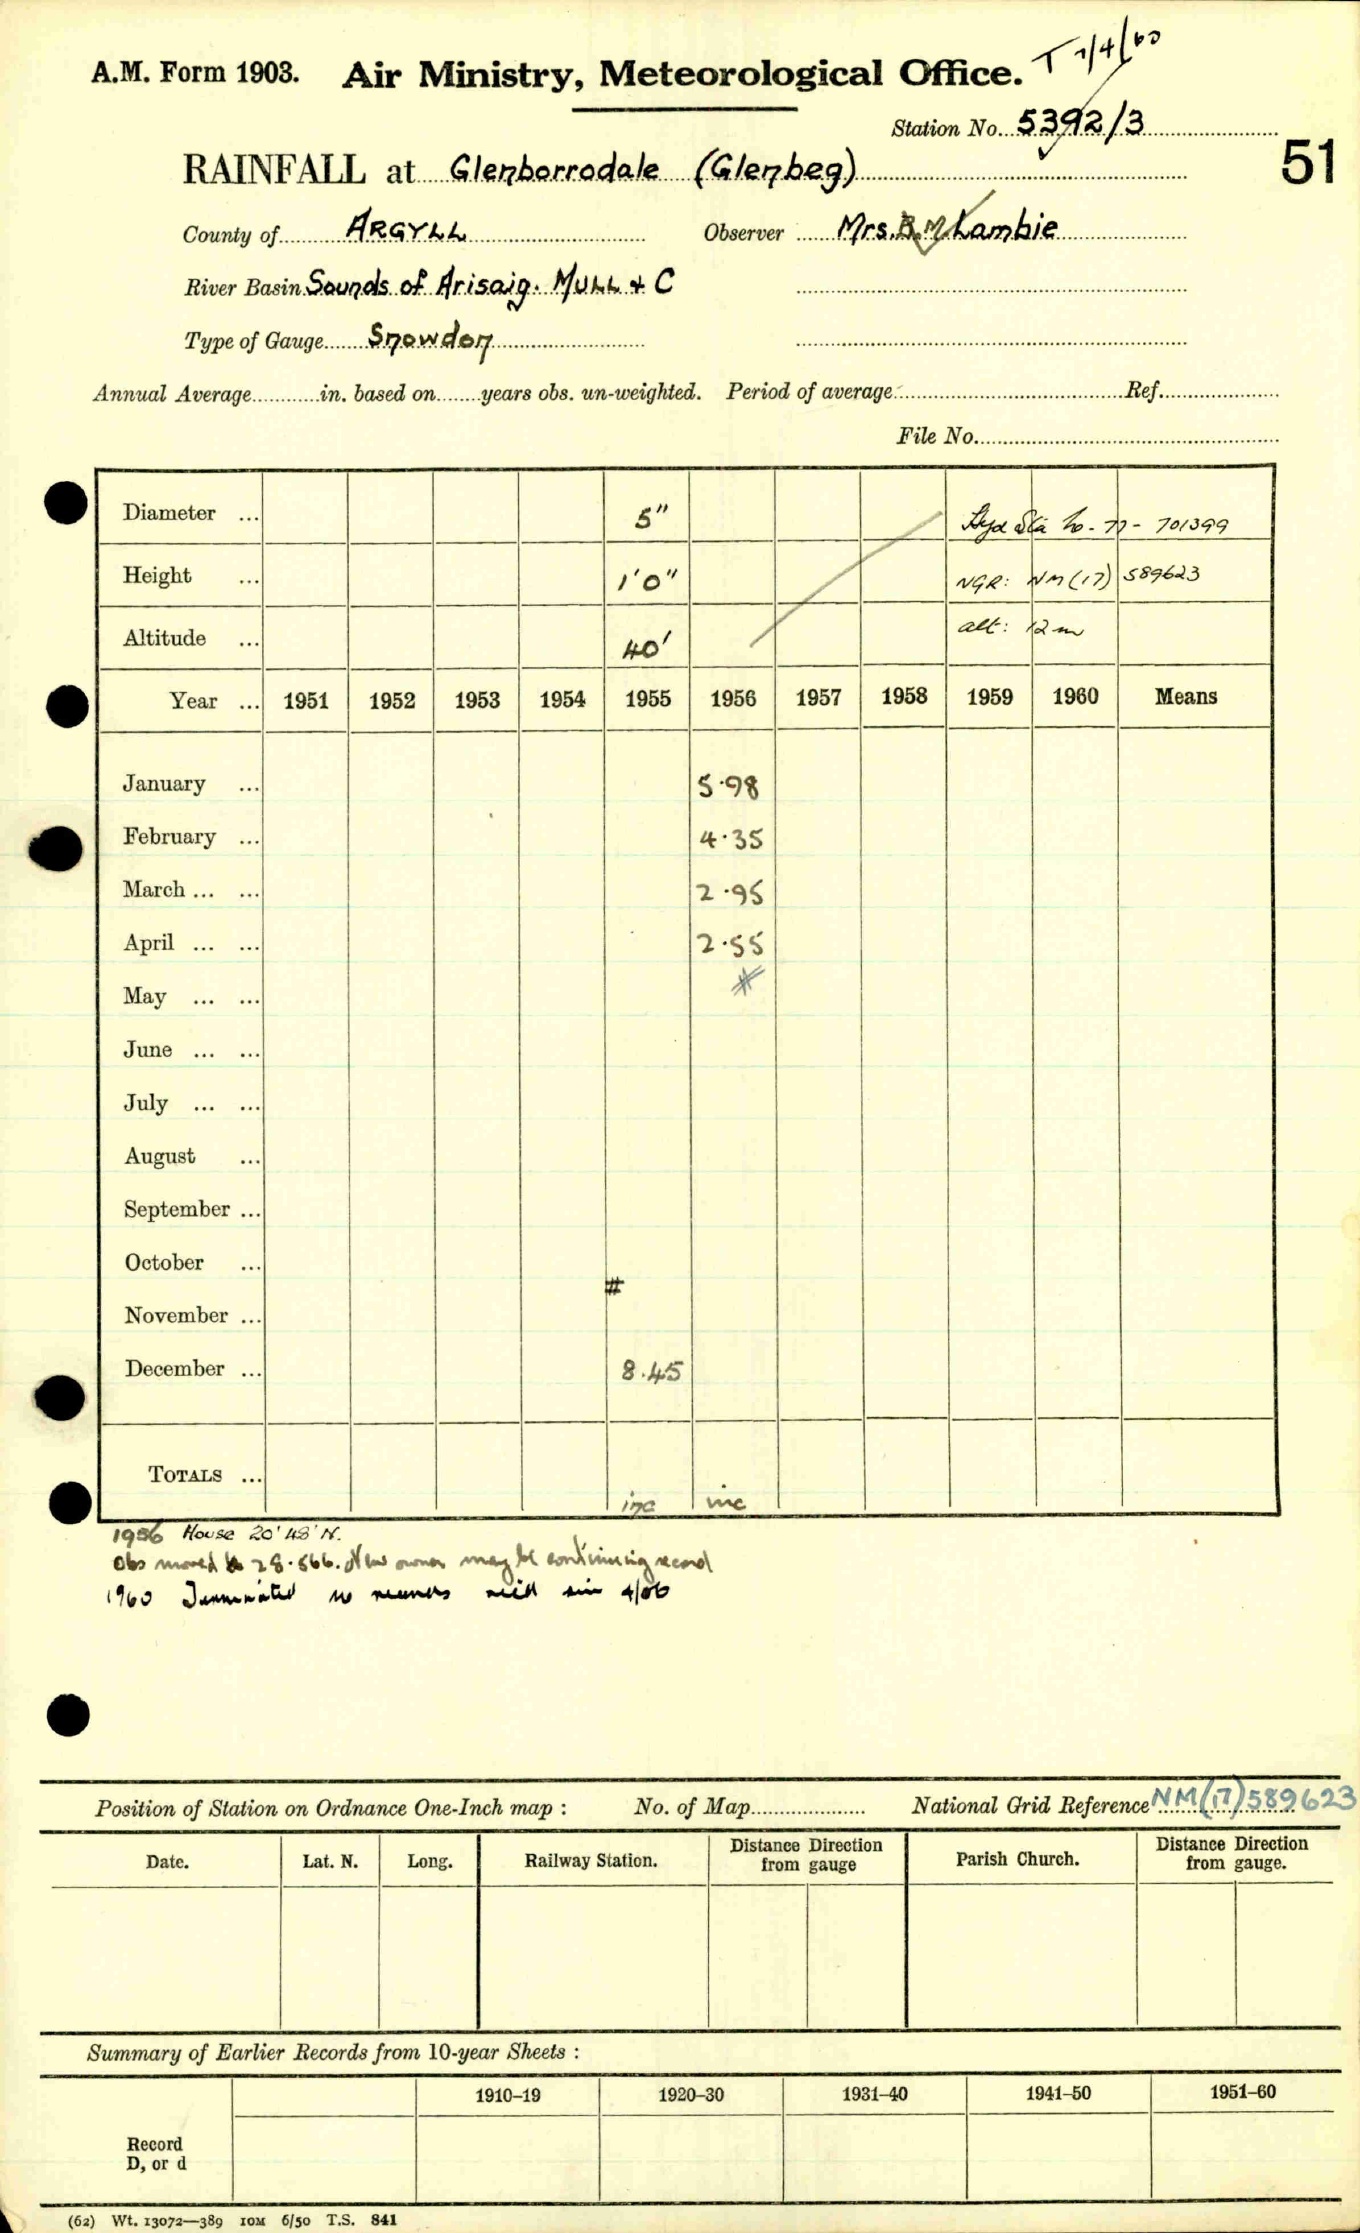 T 7/4/60
A.M. Form 1903. Air Ministry, Meteorological Office.
Station No. 5392/3
51
RAINFALL at Glenborrodale (Glenbeg)
County of ARGYLL Observer Mrs. B.M. Lambie
River Basin Sounds of Arisaig. MULL & C
Type of Gauge Snowdon
Annual Average in. based on years obs. un-weighted. Period of average Ref.
File No.
Diameter ... 5" Hyd Sta No - 77 - 701399
Height ... 1'0" NGR: NM (17) 589623
Altitude ... 40' alt: 12m
Year ... 1951 1952 1953 1954 1955 1956 1957 1958 1959 1960 Means
January ... 5.98
February ... 4.35
March ... ... 2.95
April ... ... 2.55
#
May ... ...
June ... ...
July ... ...
August ...
September ...
October ...
#
November ...
December ... 8.45
TOTALS ... inc inc
1956 House 20' 48' N.
Obs moved 28.5.66. New owner may be continuing record
1960 Terminated no returns rec'd 4/56
Position of Station on Ordnance One-Inch map : No. of Map National Grid Reference NM(17)589623
Date. Lat. N. Long. Railway Station. Distance Direction from gauge Parish Church. Distance Direction from gauge.
Summary of Earlier Records from 10-year Sheets :
1910–19 1920–30 1931–40 1941–50 1951–60
Record
D, or d
(62) Wt. 13072—389 10M 6/50 T.S. 841